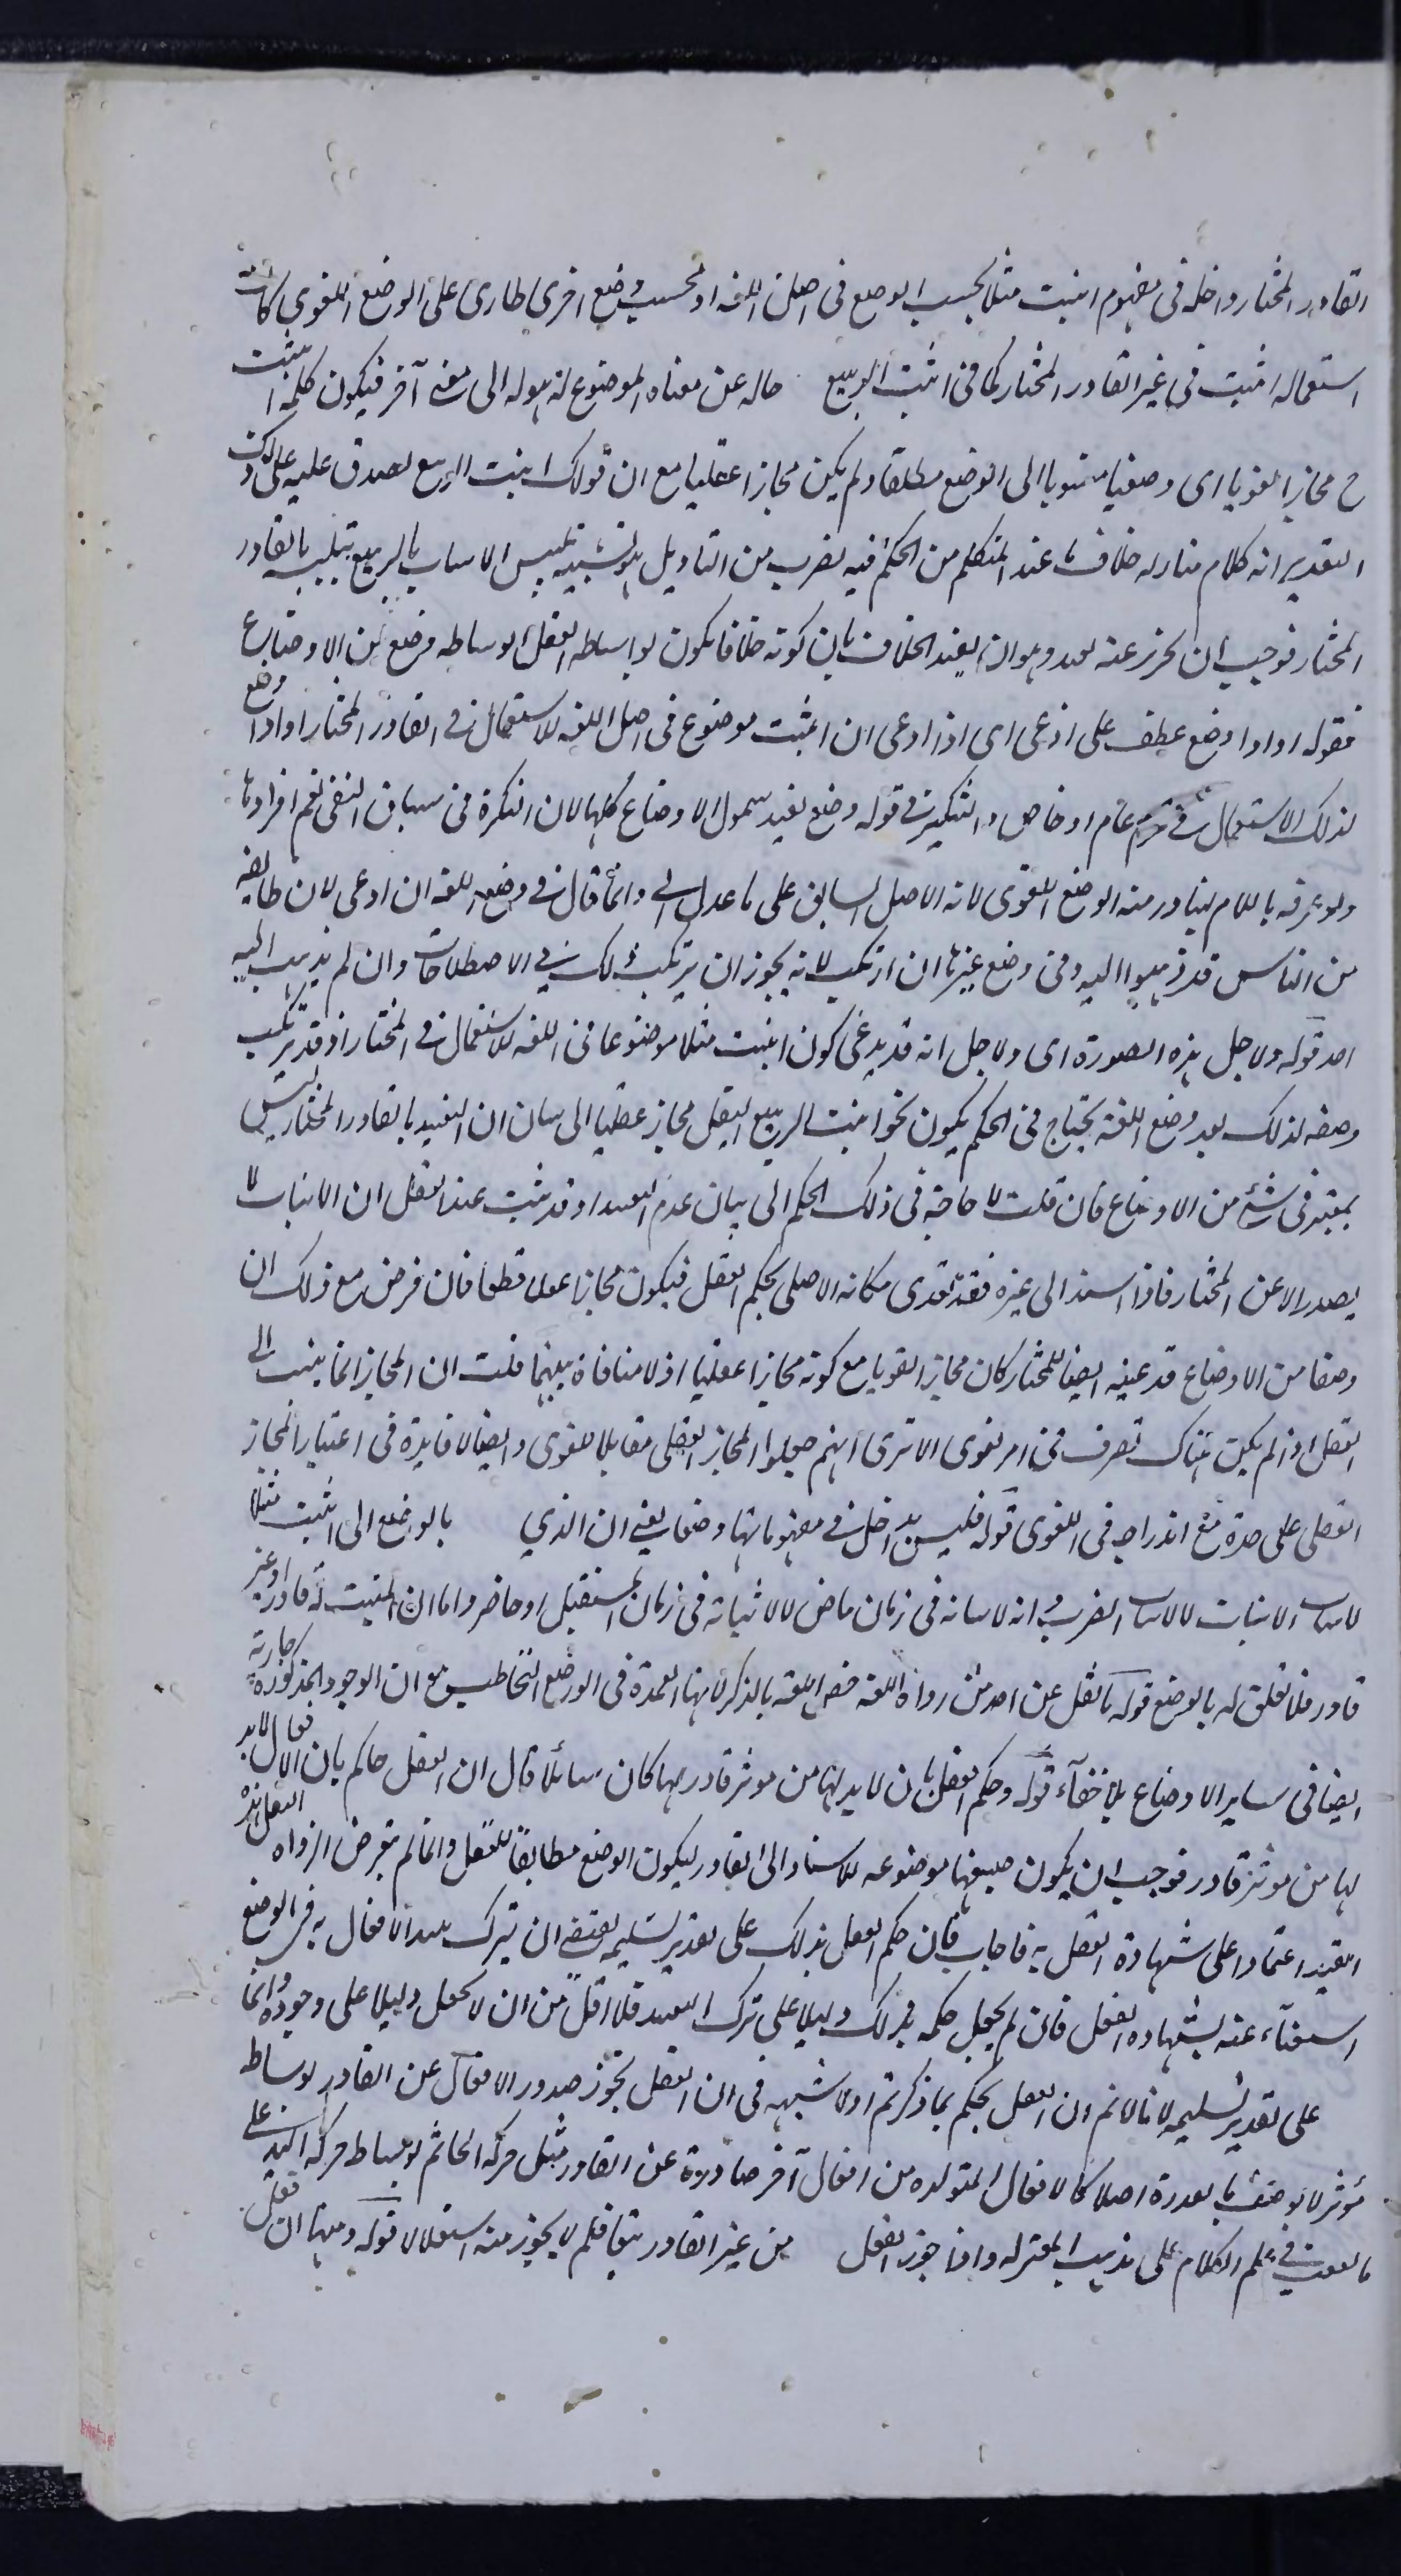 القادر المختار داخله فى مفهوم انبت مثلا بحسب الوضع فى اصل اللغه او بحسب وضع اخرى طارى على الوضع اللغوى كانت
استعماله انبت فى غير القادر المختار كما فى انبت الربيع حاله عن معناه الموضوع له هوله الى معنى آخر فيكون كلمه انبت
ح مجازا لغويا اى وضعيا منسوبا الى الوضع مطلقا ولم يكن مجازا عقليا مع ان قولك انبت الربيع لصدق عليه على ذلك
التقدير انه كلام مناوله خلاف ما عند المتكلم من الحكم فيه لضرب من التاويل هو تشبيه تلبس الانبات بالربيع بتلبسه بالقادر
المختار فوجب ان يحرز عنه لعدو هو ان يقيد الخلاف بان كونه خلافا يكون بواسطه العقل لا بوساطه وضع من الاوضاع
فقوله او اذا وضع عطف على ادعى اى اذا ادعى ان انبت موضوع فى اصل اللغه للاستعمال فى القادر المختار او اذا وضع
لذلك الاستعمال فى عرف عام او خاص والتنكير فى قوله وضع يفيد شمول الاوضاع كلها لان النكرة فى سياق النفى تعم افرادها
ولو عرفه باللام لتبادر منه الوضع اللغوى لانه الاصل السابق على ما عداه وانما قال فى وضع اللغه ان ادعى لان طايفه
من الناس قد ذهبوا اليه وفى وضع غيرها ان ارتكب لانه يجوز ان يرتكب ذلك فى الاصطلاحات وان لم يذهب اليه
احد قوله ولاجل هذه الصورة اى ولاجل انه قد يدعى كون انبت مثلا موضوعا فى اللغه للاستعمال فى المختار او قد يرتكب
وضعه لذلك بعد وضع اللغة يحتاج فى الحكم بكون نحو انبت الربيع البقل مجاز عقليا الى بيان ان التقييد بالقادر المختار ليس
بمعتبر فى شئ من الاوضاع فان قلت لا حاجة فى ذلك الحكم الى بيان عدم التقييد اذ قد يثبت عند العقل ان الانبات لا
يصدر الا عن المختار فاذا اسند الى غيره فقد تعدى مكانه الاصلى بحكم العقل فيكون مجازا عقليا قطعا فان فرض مع ذلك ان
وضعا من الاوضاع قد عينه ايضا للمختار كان مجازا لغويا مع كونه مجازا عقليا اذ لا منافاة بينهما قلت ان المجاز انما ينسب الى
العقل اذ لم يكن هناك تصرف فى امر لغوى الا ترى انهم جعلوا المجاز العقلى مقابلا للغوى وايضا لا فايدة فى اعتبار المجاز
العقلى على حدة مع اندراجه فى اللغوى قوله فليس بداخل فى مفهوماتها وضعا يعنى ان الذي بالوضع الى انبت مثلا
لاثبات الانبات لا لاثبات الضرب وانه لاثباته فى زمان ماض لا لاثباته فى زمان المستقبل او حاضر واما ان المثبت له قادر او غير
قادر فلا تعلق له بالوضع قوله ما نقل عن احد من رواة اللغه خص اللغه بالذكر لانها العمدة فى الوضع التخاطب مع ان الوجوه المذكورة جارية
ايضا فى ساير الاوضاع بلا خفاء قوله وحكم العقل بان لا بد لها من موثر قادر بها كان سائلا قال ان العقل حاكم بان الافعال لا بد
لها من موثر قادر فوجب ان يكون صيغها موضوعه للاسناد الى القادر ليكون الوضع مطابقا للعقل وانما لم يتعرض الرواه لنقل هذا
القيد اعتمادا على شهادة العقل به فاجاب فان حكم العقل بذلك على تقدير تسليمه يقتضى ان يترك تقييد الافعال به فى الوضع
استغناء عنه بشهاده العقل فان لم يجعل حكمه بذلك دليلا على ترك التقييد فلا اقل من ان لا يجعل دليلا على وجوده وانما
على تقدير تسليمه لانا لا نم ان العقل يحكم بما ذكرتم اذ لا شبهه فى ان العقل يجوز صدور الافعال عن القادر بوساط
موثر لا يوصف بالقدرة اصلا كالافعال المتولده من افعال آخر صادرة عن القادر مثل حركة الخاتم بوساط حركة اليد على
ما فى علم الكلام على مذهب المعتزله واذا جوز العقل من غير القادر تبعا فلم لا يجوز منه استقلالا قوله ومنها ان فعل